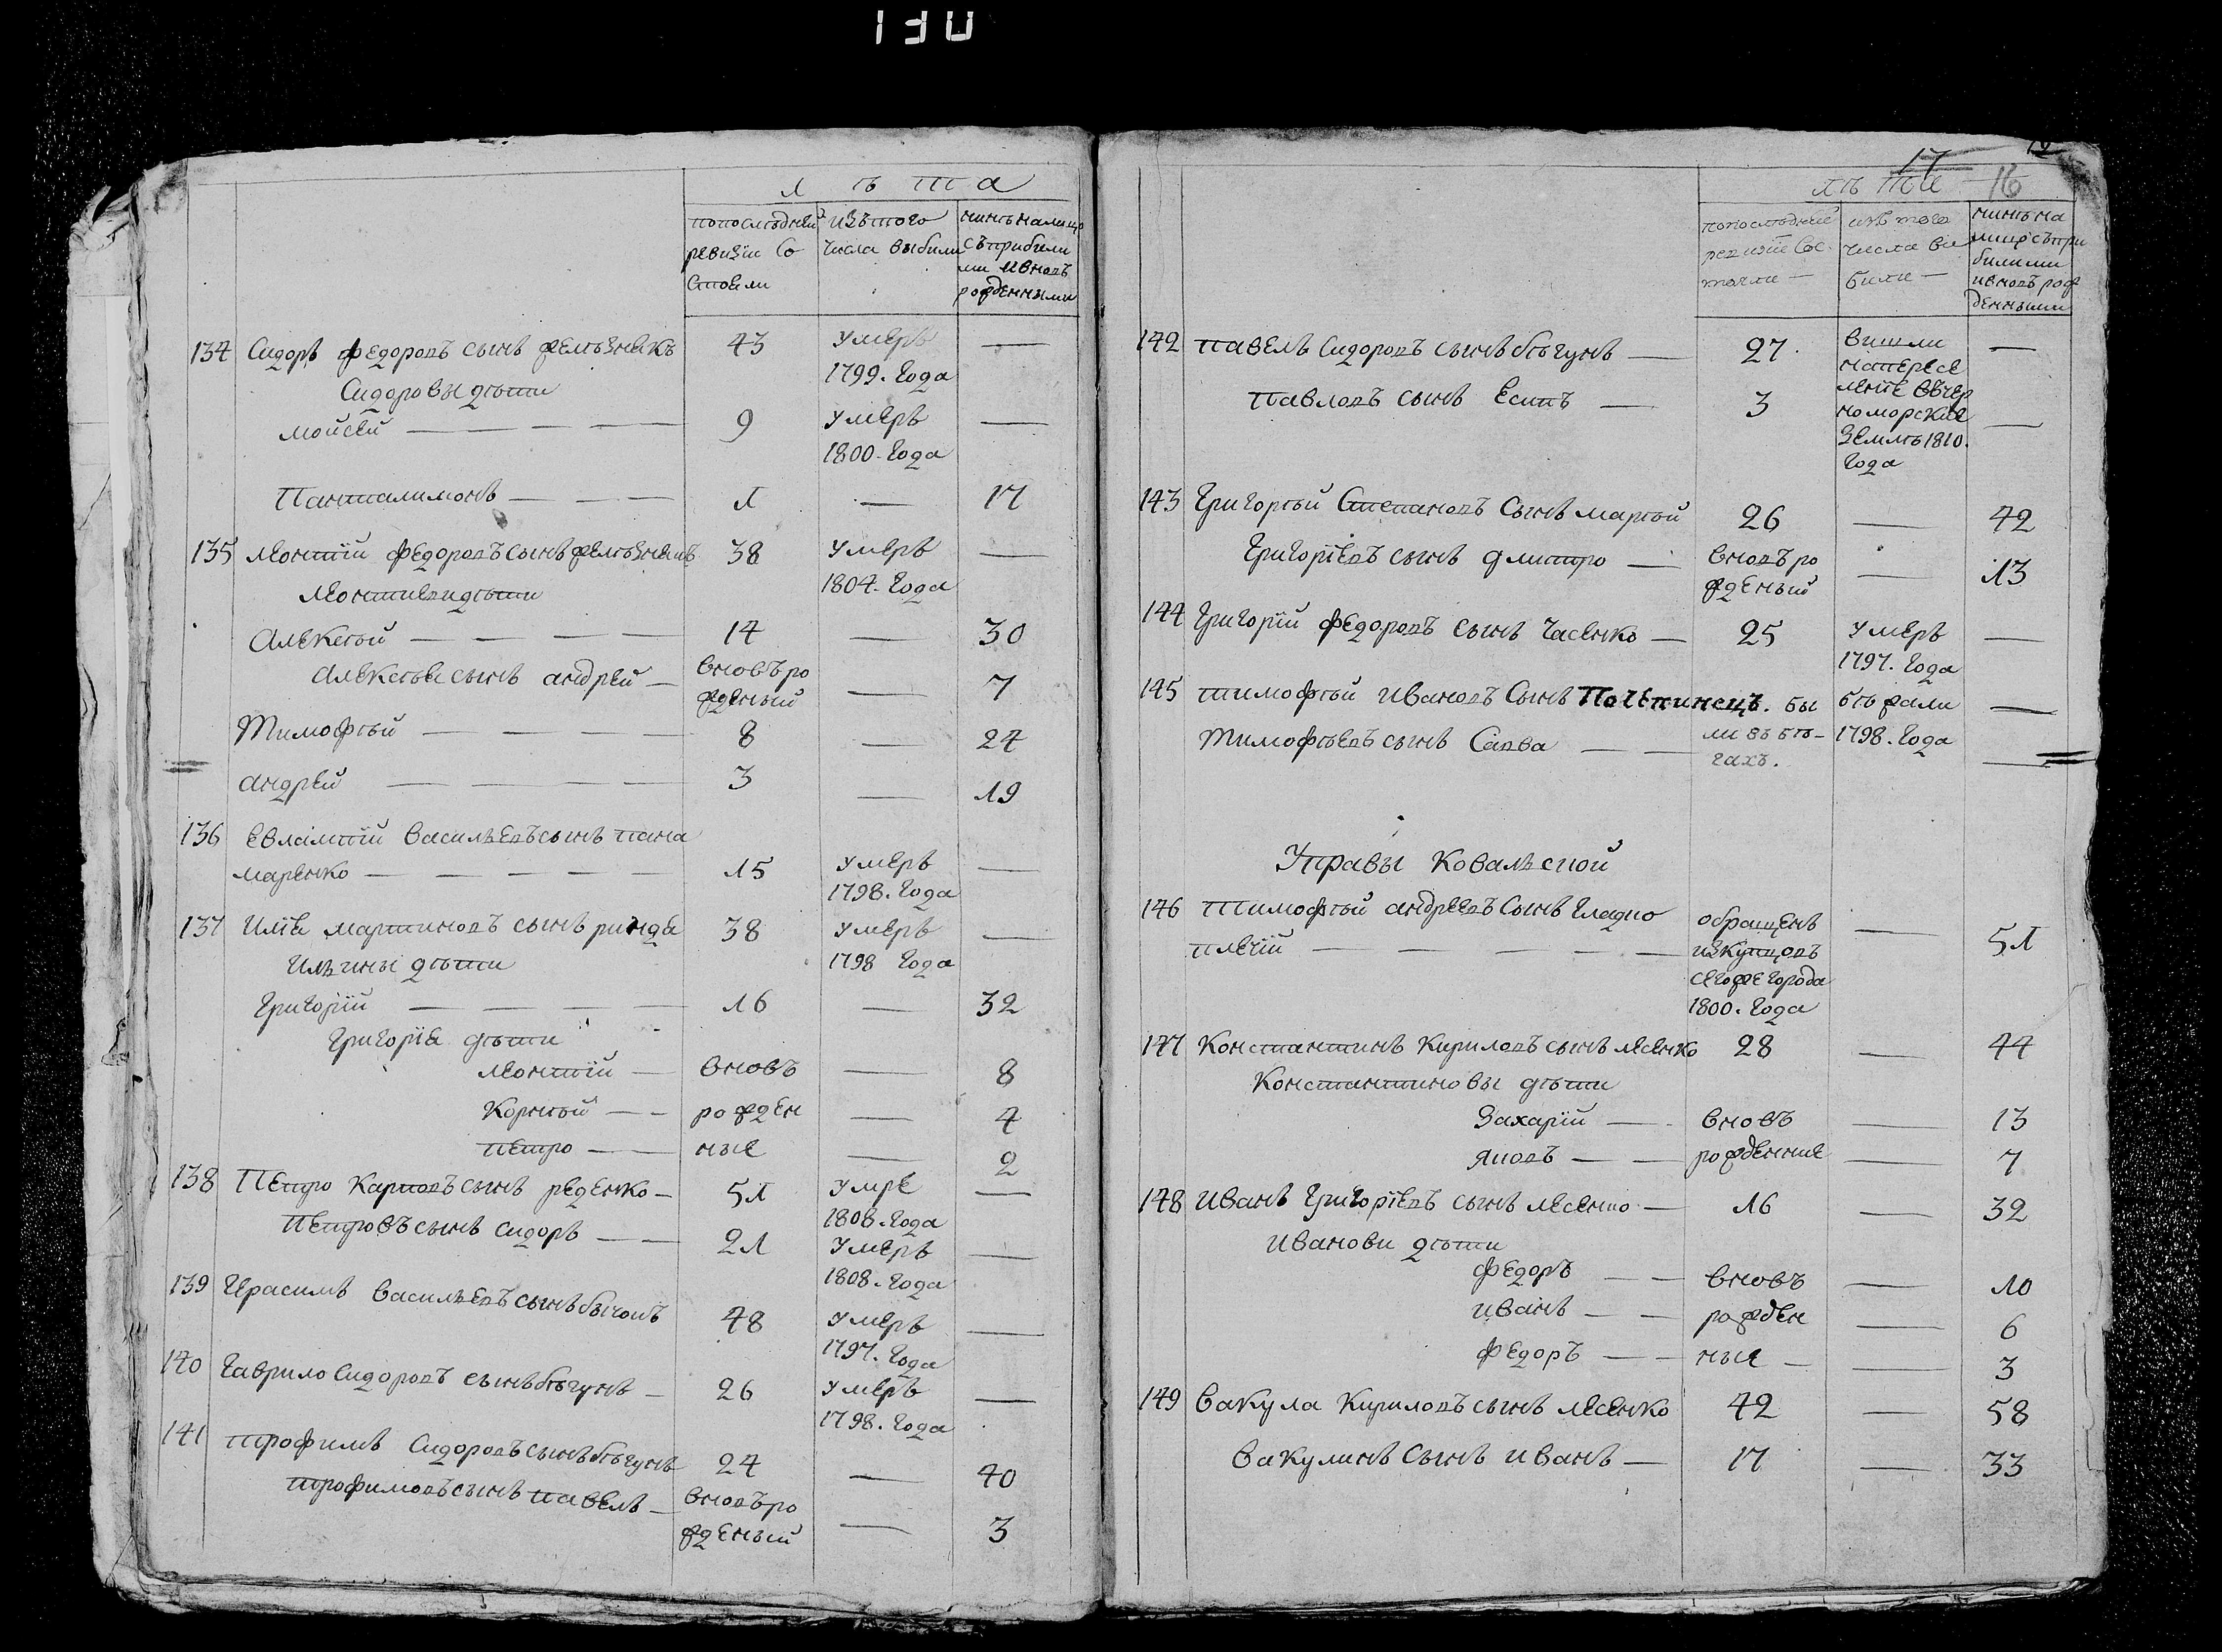 130
лѣта
попослѣдней ревизіи со стояли
изътого числа выбили
нинѣналицо съприбили ми ивновъ рожденными
134 Сидоръ Федоровъ сынъ Желѣзнякъ 43 умеръ —
1799. Года
Сидоровы дѣти
Мойсей — — — — 9 умеръ —
1800. Года
Пантилимонъ — — — 1 — 17
135 Леонтій Федоровъ сынъ Желѣзнякъ 38 умеръ —
1804. Года
Леонтиеви дѣти
Алексѣй — — — — 14 — 30
Алексѣя сынъ андрей — вновъ ро жденый — 7
Тимофѣй — — — — 8 — 24
андрей — — — — 3 — 19
136 Евлампій Васильевъ сынъ пана
маренко — — — — — 15 умеръ —
1798. Года
137 Илія Мартиновъ сынъ ринда 38 умеръ —
1798 Года
Ильины дѣти
Григорій — — — — 16 — 32
Григорія дѣти
Леонтій — вновъ — 8
Корнѣй — — рожден — 4
петро — — ные — 2
138 Петро Карповъ сынъ реденко — 51 умре —
1808. Года
Петровъ сынъ сидоръ — — 21 умеръ —
1808. Года
139 Герасимъ Васильевъ сынъ бычокъ 48 умеръ —
1797. Года
140 Гаврило Сидоровъ сынъ бѣгунъ — 26 умеръ —
1798. Года
141 трофимъ Сидоровъ сынъ бѣгунъ 24 — 40
трофимовъ сынъ павелъ — вновъ ро жденый — 3
17
16
лѣта
попослѣдней ревизіи сос тояли —
изъ того числа ви били —
нинѣна лицо съпри билими ивновъ рож денными
142 павелъ Сидоровъ сынъ бѣгунъ — 27 вишли —
павловъ сынъ Есипъ — 3 напересе
ленïе въчер
номорскïе —
землѣ 1810.
Года
143 Григорѣй Степановъ Сынъ марѣй 26 — 42
Григоріевъ сынъ дмитро — вновъ ро жденый — 13
144 Григорій Федоровъ сынъ Часенко — 25 умеръ —
1797. Года
145 тимофѣй Ивановъ Сынъ бы бѣжали —
Тимофѣевъ сынъ Савва — — ли въ бѣ– 1798. Года
гахъ. —
Управы Ковальской
146 Тимофѣй андреевъ Сынъ Гладко обращенъ —
плечій — — — — — изкупцовъ 51
сегоже города
1800. Года
147 Константинъ Кириловъ сынъ лесенко 28 — 44
Константиновы дѣти
Захарій — — вновъ — 13
яковъ — — рожденние — 7
148 Иванъ Григоріевъ сынъ лесенко — 16 — 32
Иванови дѣти
Федоръ — — вновъ — 10
иванъ — — рожден — 6
Федоръ — — ные — — 3
149 Вакула Кириловъ сынъ лесенко 42 — 58
Вакулинъ Сынъ Иванъ — 17 — 33